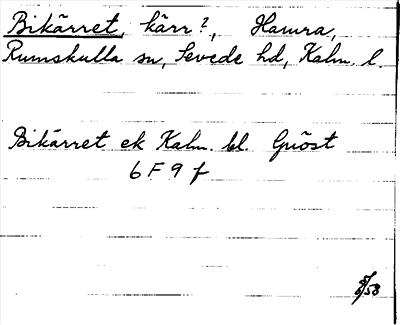 Bikärret, kärr?, Hamra,
Rumskulla sn, Sevede hd, Kalm. l.
Bikärret ek Kalm. bl. Gnöst
6 F 9 f